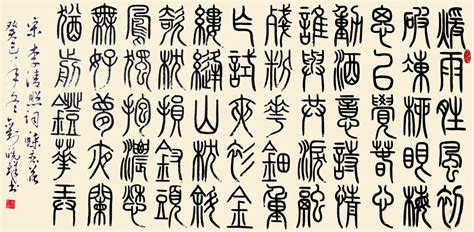 煖雨晴風初
破凍柳眼梅
腮已覺春心
動酒意詩情
誰與共淚融
殘粉花鈿重
乍試夾衫金
縷縫山枕斜
欹枕損釵頭
鳳獨抱濃愁
無好夢夜闌
猶剪燈花弄
宋李清照詞蝶恋花
癸巳年冬劉曉書